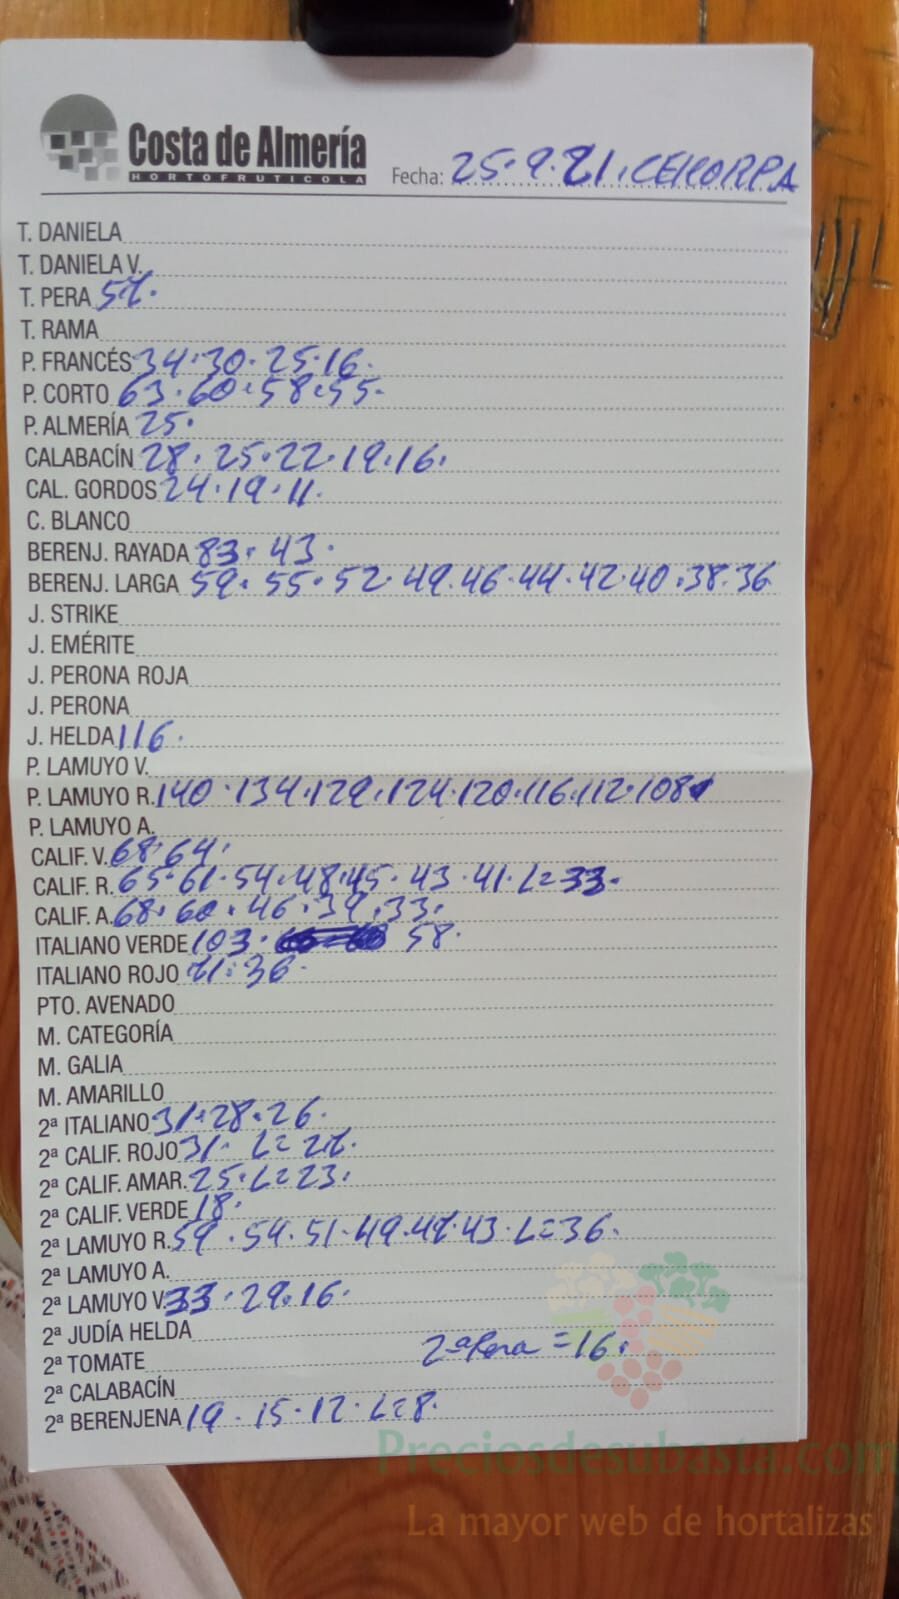 Costa de Almería
HORTOFRUTICOLA
Fecha: 25.9.21. CEHORPA
T. DANIELA
T. DANIELA V.
T. PERA 57.
T. RAMA
P. FRANCÉS 34.30.25.16.
P. CORTO 63.60.58.55.
P. ALMERÍA 25.
CALABACÍN 28.25.22.19.16.
CAL. GORDOS 24.19.11.
C. BLANCO
BERENJ. RAYADA 83.43.
BERENJ. LARGA 59.55.52.49.46.44.42.40.38.36
J. STRIKE
J. EMÉRITE
J. PERONA ROJA
J. PERONA
J. HELDA 116.
P. LAMUYO V.
P. LAMUYO R. 140.134.129.124.120.116.112.108
P. LAMUYO A.
CALIF. V. 68.64.
CALIF. R. 65.61.54.48.45.43.41.L=33.
CALIF. A. 68.60.46.39.33.
ITALIANO VERDE 103. 58.
ITALIANO ROJO 71.36.
PTO. AVENADO
M. CATEGORÍA
M. GALIA
M. AMARILLO
2ª ITALIANO 31.28.26.
2ª CALIF. ROJO 31. L=27.
2ª CALIF. AMAR. 25.L=23.
2ª CALIF. VERDE 18.
2ª LAMUYO R. 59.54.51.49.47.43.L=36.
2ª LAMUYO A.
2ª LAMUYO V. 33.29.16.
2ª JUDÍA HELDA
2ª TOMATE 2ª Pera =16.
2ª CALABACÍN
2ª BERENJENA 19.15.12.L=8.
Preciosdesubasta.com
La mayor web de hortalizas